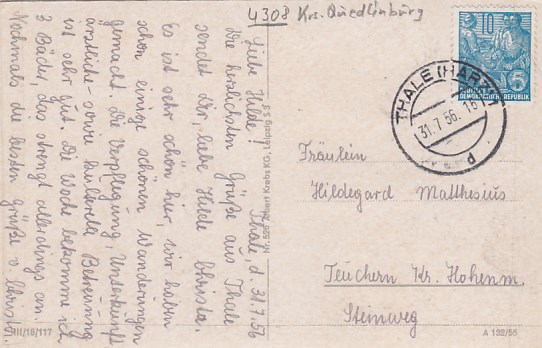 4308 Krs. Quedlinburg
Thale, d. 31.7.56
Liebe Hilde!
Die herzlichsten Grüße aus Thale
sendet Dir, liebe Hilde Christa.
Es ist sehr schön hier, wir haben
schon einige schönen Wanderungen
gemacht. Die Verpflegung, Unterkunft
ärztliche- sowie kulturelle Betreuung
ist sehr gut. Die Woche bekomme ich
3 Bäder, das strengt allerdings an.
Nochmals die besten Grüße v. Christa.
III/18/117
Nr. 526 Albert Krebs KG., Leipzig S 3
10 5
DEUTSCHE
DEMOKRATISCHE REPUBLIK
THALE (HARZ)
31.7.56.
d
Fräulein
Hildegard Matthesius
Teuchern Kr. Hohenm.
Steinweg
A 132/55